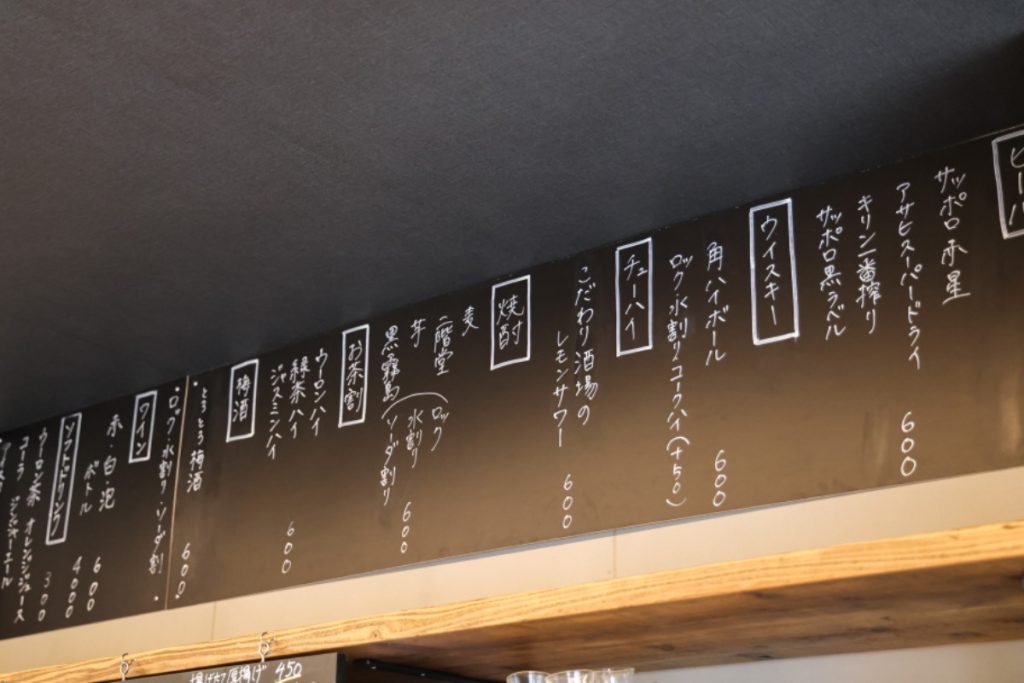 ビール
サッポロ赤星
アサヒスーパードライ 600
キリン一番搾り
サッポロ黒ラベル
ウイスキー
角ハイボール 600
ロック 水割り コークハイ(+50)
チューハイ
こだわり酒場の
レモンサワー 600
焼酎
麦
二階堂
芋
黒霧島
ロック
水割り
ソーダ割り 600
お茶割
ウーロンハイ
緑茶ハイ 600
ジャスミンハイ
梅酒
・とろとろ梅酒 600
・ロック・水割り ソーダ割・
ワイン
赤・白・泡 600
ボトル 4000
ソフトドリンク 300
ウーロン茶 オレンジジュース
コーラ ジンジャーエール
厚揚げ 450